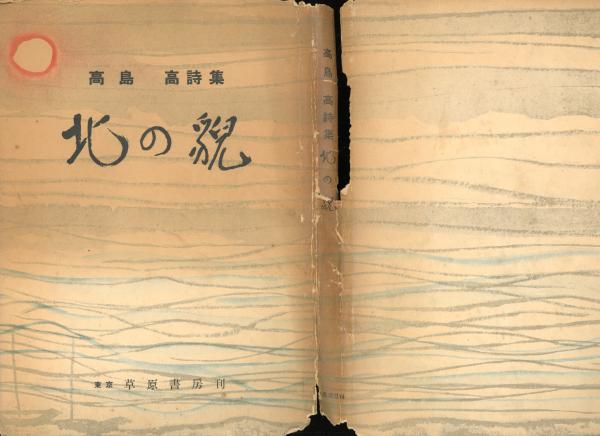 高島 高詩集
北の貌
東京 草原書房刊
高島 高詩集 北の貌